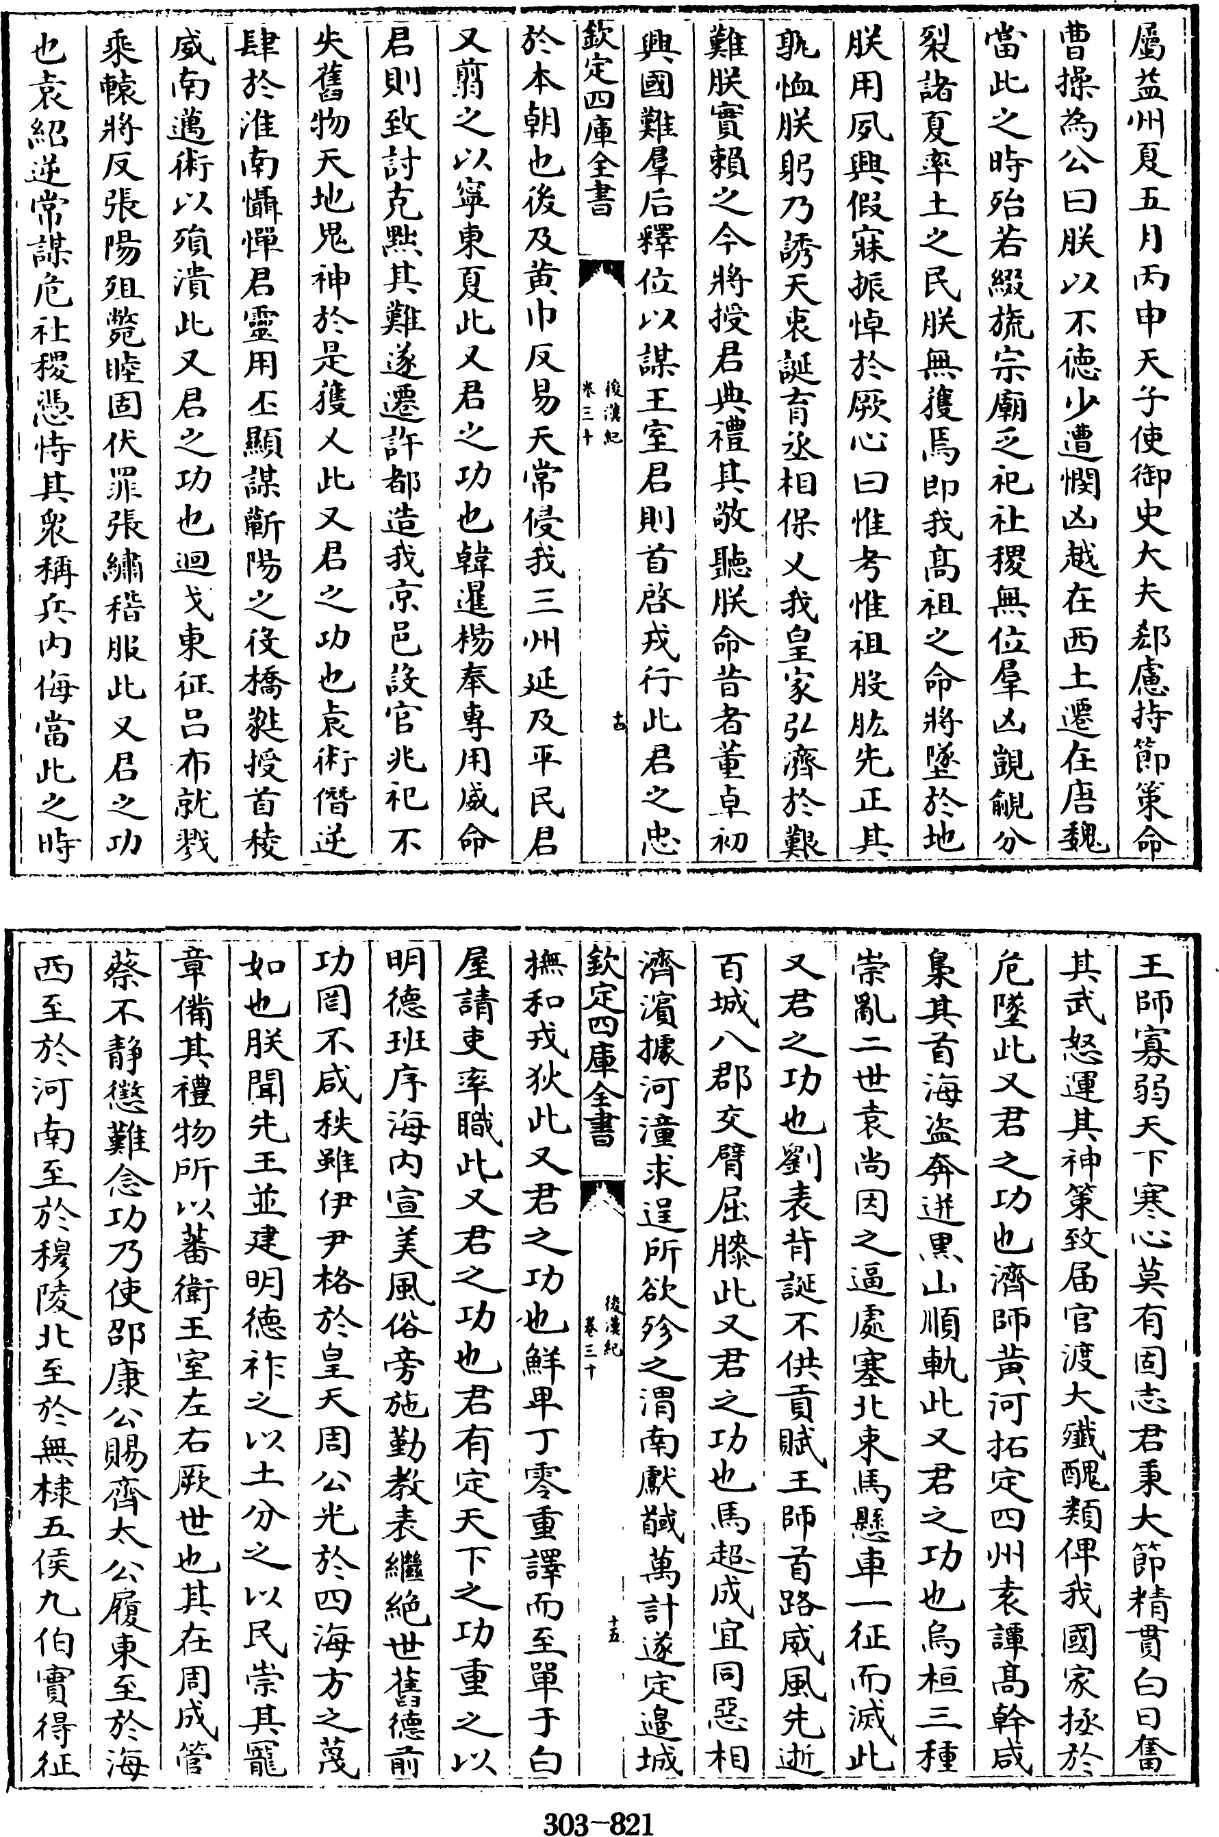 屬益州夏五月丙申天子使御史大夫郗慮持節策命
曹操為公曰朕以不德少遭憫凶越在西土遷在唐魏
當此之時殆若綴旒宗廟乏祀社稷無位羣凶覬覦分
裂諸夏率土之民朕無獲焉即我髙祖之命將墜於地
朕用夙興假寐振悼於厥心曰惟考惟祖股肱先正其
孰恤朕躬乃誘天衷誕育丞相保乂我皇家弘濟於艱
難朕實賴之今將授君典禮其敬聽朕命昔者董卓初
興國難羣后釋位以謀王室君則首啓戎行此君之忠
欽定四庫全書
後漢紀
卷三十
十四
於本朝也後及黄巾反易天常侵我三州延及平民君
又翦之以寧東夏此又君之功也韓暹楊奉專用威命
君則致討克黜其難遂遷許都造我京邑設官兆祀不
失舊物天地鬼神於是獲乂此又君之功也袁術僭逆
肆於淮南懾憚君靈用丕顯謀蘄陽之役橋蕤授首稜
威南邁術以殞潰此又君之功也迴戈東征吕布就戮
乘轅將反張陽殂斃眭固伏罪張繡稽服此又君之功
也袁紹逆常謀危社稷憑恃其衆稱兵内侮當此之時
王師寡弱天下寒心莫有固志君秉大節精貫白日奮
其武怒運其神策致届官渡大殲醜類俾我國家拯於
危墜此又君之功也濟師黄河拓定四州袁譚髙幹咸
梟其首海盗奔迸黒山順軌此又君之功也烏桓三種
崇亂二世袁尚因之逼處塞北束馬懸車一征而滅此
又君之功也劉表背誕不供貢賦王師首路威風先逝
百城八郡交臂屈膝此又君之功也馬超成宜同惡相
濟濵據河潼求逞所欲殄之渭南獻馘萬計遂定邉城
欽定四庫全書
後漢紀
卷三十
十五
撫和戎狄此又君之功也鮮卑丁零重譯而至單于白
屋請吏率職此又君之功也君有定天下之功重之以
明德班序海内宣美風俗旁施勤教表繼絶世舊德前
功罔不咸秩雖伊尹格於皇天周公光於四海方之蔑
如也朕聞先王並建明德祚之以土分之以民崇其寵
章備其禮物所以蕃衛王室左右厥世也其在周成管
蔡不静懲難念功乃使邵康公賜齊太公履東至於海
西至於河南至於穆陵北至於無棣五侯九伯實得征
303-821